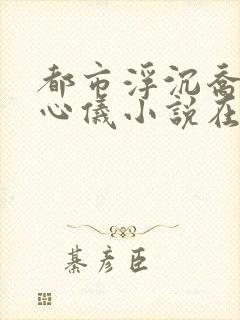 都市浮沉喬
心儀小說在
綦彥臣